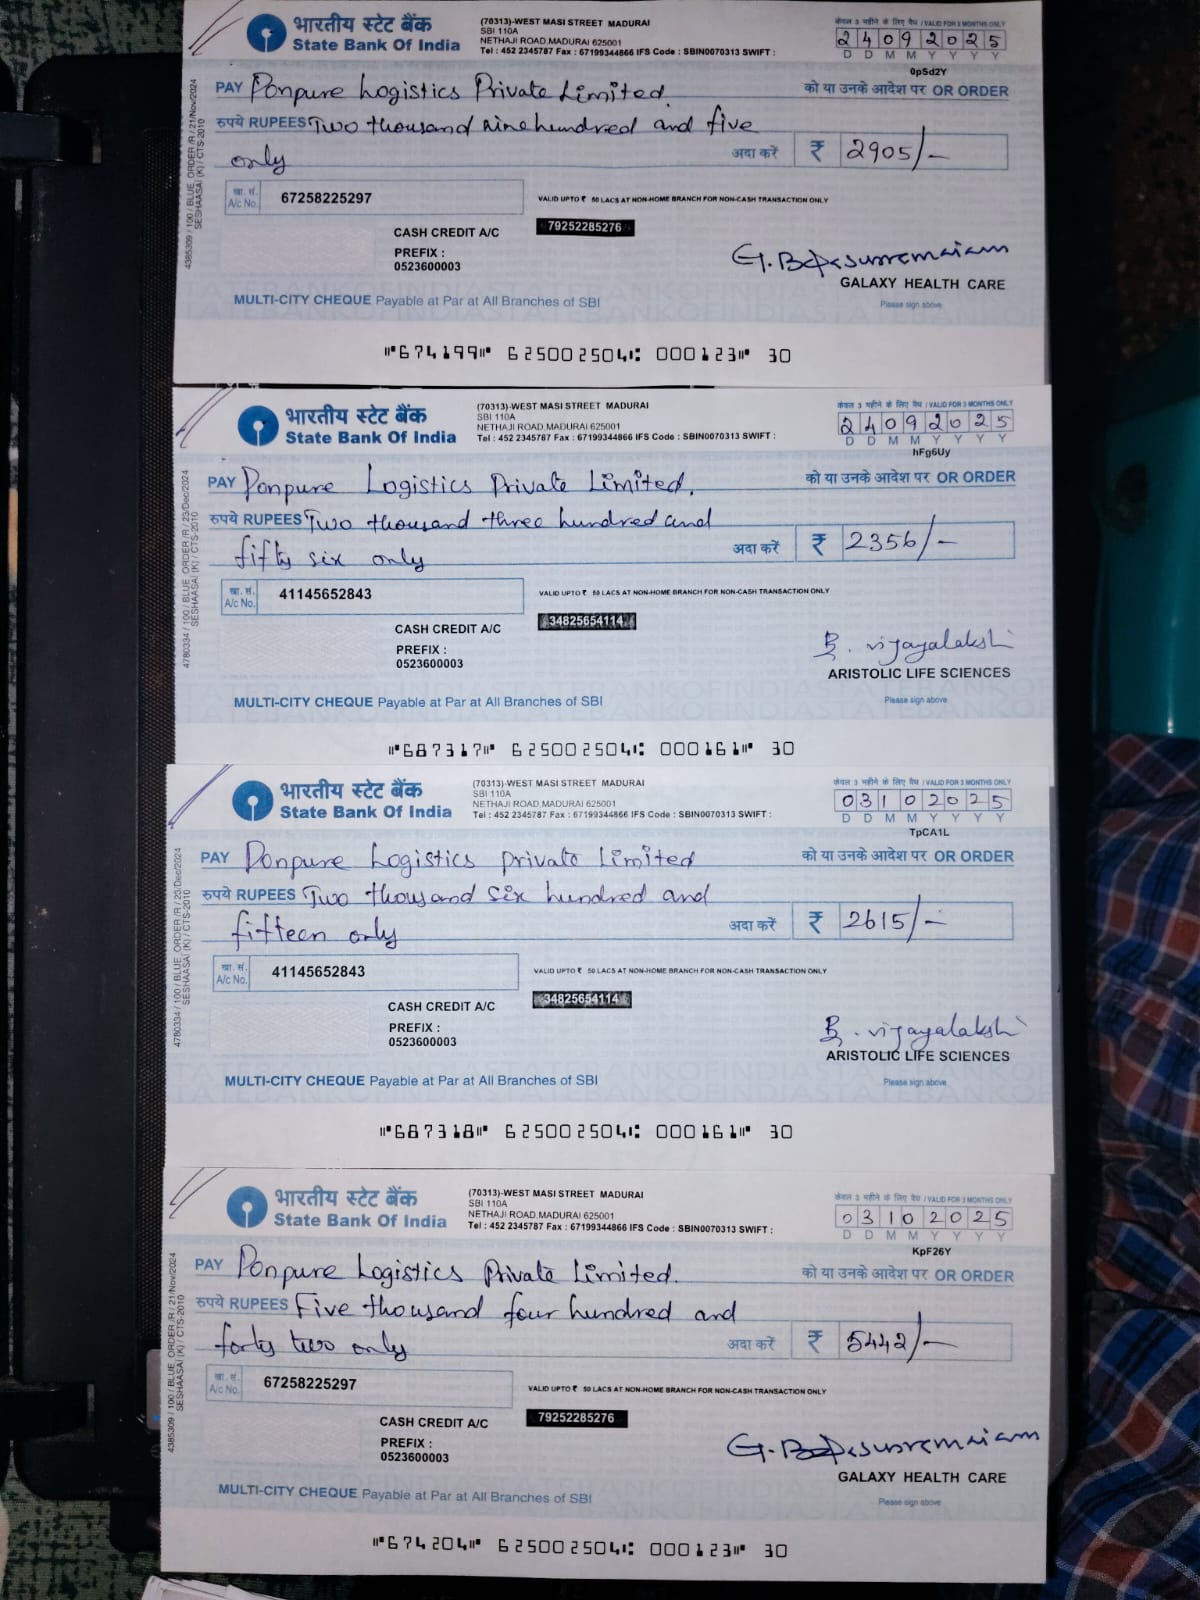 भारतीय स्टेट बैंक
State Bank Of India
(70313)-WEST MASI STREET MADURAI
SBI 110A
NETHAJI ROAD,MADURAI 625001
Tel : 452 2345787 Fax : 67199344866 IFS Code : SBIN0070313 SWIFT :
केवल 3 महीने के लिए वैध / VALID FOR 3 MONTHS ONLY
24092025
D D M M Y Y Y Y
0pSd2Y
PAY Ponpure Logistics Private Limited. को या उनके आदेश पर OR ORDER
रुपये RUPEES Two thousand nine hundred and five
only अदा करें ₹ 2905/-
खा. सं. A/c No. 67258225297
VALID UPTO ₹ 50 LACS AT NON-HOME BRANCH FOR NON-CASH TRANSACTION ONLY
79252285276
CASH CREDIT A/C
PREFIX :
0523600003
GALAXY HEALTH CARE
Please sign above
MULTI-CITY CHEQUE Payable at Par at All Branches of SBI
4385309 / 100 / BLUE_ORDER /R / 21/Nov/2024
SESHAASAI (K) / CTS-2010
⑈674199⑈ 625002504⑆ 000123⑈ 30
भारतीय स्टेट बैंक
State Bank Of India
(70313)-WEST MASI STREET MADURAI
SBI 110A
NETHAJI ROAD,MADURAI 625001
Tel : 452 2345787 Fax : 67199344866 IFS Code : SBIN0070313 SWIFT :
केवल 3 महीने के लिए वैध / VALID FOR 3 MONTHS ONLY
24092025
D D M M Y Y Y Y
hFg6Uy
PAY Ponpure Logistics Private Limited. को या उनके आदेश पर OR ORDER
रुपये RUPEES Two thousand three hundred and
fifty six only अदा करें ₹ 2356/-
खा. सं. A/c No. 41145652843
VALID UPTO ₹ 50 LACS AT NON-HOME BRANCH FOR NON-CASH TRANSACTION ONLY
34825654114
CASH CREDIT A/C
PREFIX :
0523600003
B. Vijayalakshi
ARISTOLIC LIFE SCIENCES
Please sign above
MULTI-CITY CHEQUE Payable at Par at All Branches of SBI
4780334 / 100 / BLUE_ORDER /R / 23/Dec/2024
SESHAASAI (K) / CTS-2010
⑈687317⑈ 625002504⑆ 000161⑈ 30
भारतीय स्टेट बैंक
State Bank Of India
(70313)-WEST MASI STREET MADURAI
SBI 110A
NETHAJI ROAD,MADURAI 625001
Tel : 452 2345787 Fax : 67199344866 IFS Code : SBIN0070313 SWIFT :
केवल 3 महीने के लिए वैध / VALID FOR 3 MONTHS ONLY
03102025
D D M M Y Y Y Y
TpCA1L
PAY Ponpure Logistics private Limited को या उनके आदेश पर OR ORDER
रुपये RUPEES Two thousand six hundred and
fifteen only अदा करें ₹ 2615/-
खा. सं. A/c No. 41145652843
VALID UPTO ₹ 50 LACS AT NON-HOME BRANCH FOR NON-CASH TRANSACTION ONLY
34825654114
CASH CREDIT A/C
PREFIX :
0523600003
B. Vijayalakshi
ARISTOLIC LIFE SCIENCES
Please sign above
MULTI-CITY CHEQUE Payable at Par at All Branches of SBI
4780334 / 100 / BLUE_ORDER /R / 23/Dec/2024
SESHAASAI (K) / CTS-2010
⑈687318⑈ 625002504⑆ 000161⑈ 30
भारतीय स्टेट बैंक
State Bank Of India
(70313)-WEST MASI STREET MADURAI
SBI 110A
NETHAJI ROAD,MADURAI 625001
Tel : 452 2345787 Fax : 67199344866 IFS Code : SBIN0070313 SWIFT :
केवल 3 महीने के लिए वैध / VALID FOR 3 MONTHS ONLY
03102025
D D M M Y Y Y Y
KpF26Y
PAY Ponpure Logistics Private Limited. को या उनके आदेश पर OR ORDER
रुपये RUPEES Five thousand four hundred and
forty two only अदा करें ₹ 5442/-
खा. सं. A/c No. 67258225297
VALID UPTO ₹ 50 LACS AT NON-HOME BRANCH FOR NON-CASH TRANSACTION ONLY
79252285276
CASH CREDIT A/C
PREFIX :
0523600003
GALAXY HEALTH CARE
Please sign above
MULTI-CITY CHEQUE Payable at Par at All Branches of SBI
4385309 / 100 / BLUE_ORDER /R / 21/Nov/2024
SESHAASAI (K) / CTS-2010
⑈674204⑈ 625002504⑆ 000123⑈ 30